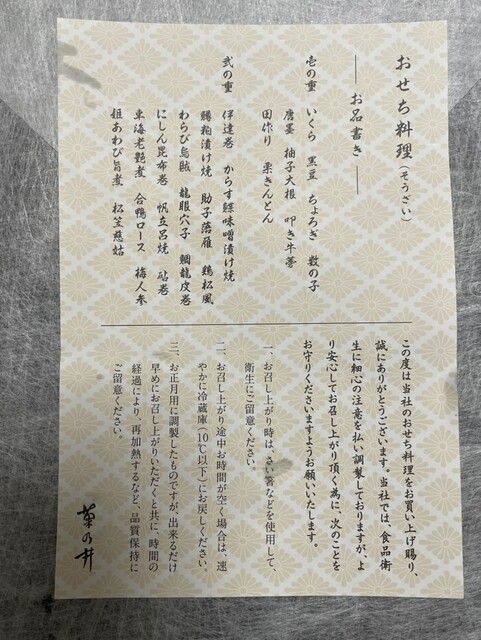 おせち料理（そうざい）
── お品書き ──
壱の重　いくら　黒豆　ちょろぎ　数の子
唐墨　柚子大根　叩き牛蒡
田作り　栗きんとん
弐の重　伊達巻　からす鰈味噌漬け焼
鱒粕漬け焼　助子落雁　鶏松風
わらび烏賊　龍眼穴子　鯛龍皮巻
にしん昆布巻　帆立呂焼　砧巻
車海老艶煮　合鴨ロース　梅人参
姫あわび旨煮　松笠慈姑
この度は当社のおせち料理をお買い上げ賜り、
誠にありがとうございます。当社では、食品衛
生に細心の注意を払い調製しておりますが、よ
り安心してお召し上がり頂く為に、次のことを
お守りくださいますようお願いいたします。
一、お召し上がり時は、さい箸などを使用して、
衛生にご留意ください。
二、お召し上がり途中お時間が空く場合は、速
やかに冷蔵庫（10℃以下）にお戻しください。
三、お正月用に調製したものですが、出来るだけ
早めにお召し上がりいただくと共に、時間の
経過により、再加熱するなど、品質保持に
ご留意ください。
菊乃井